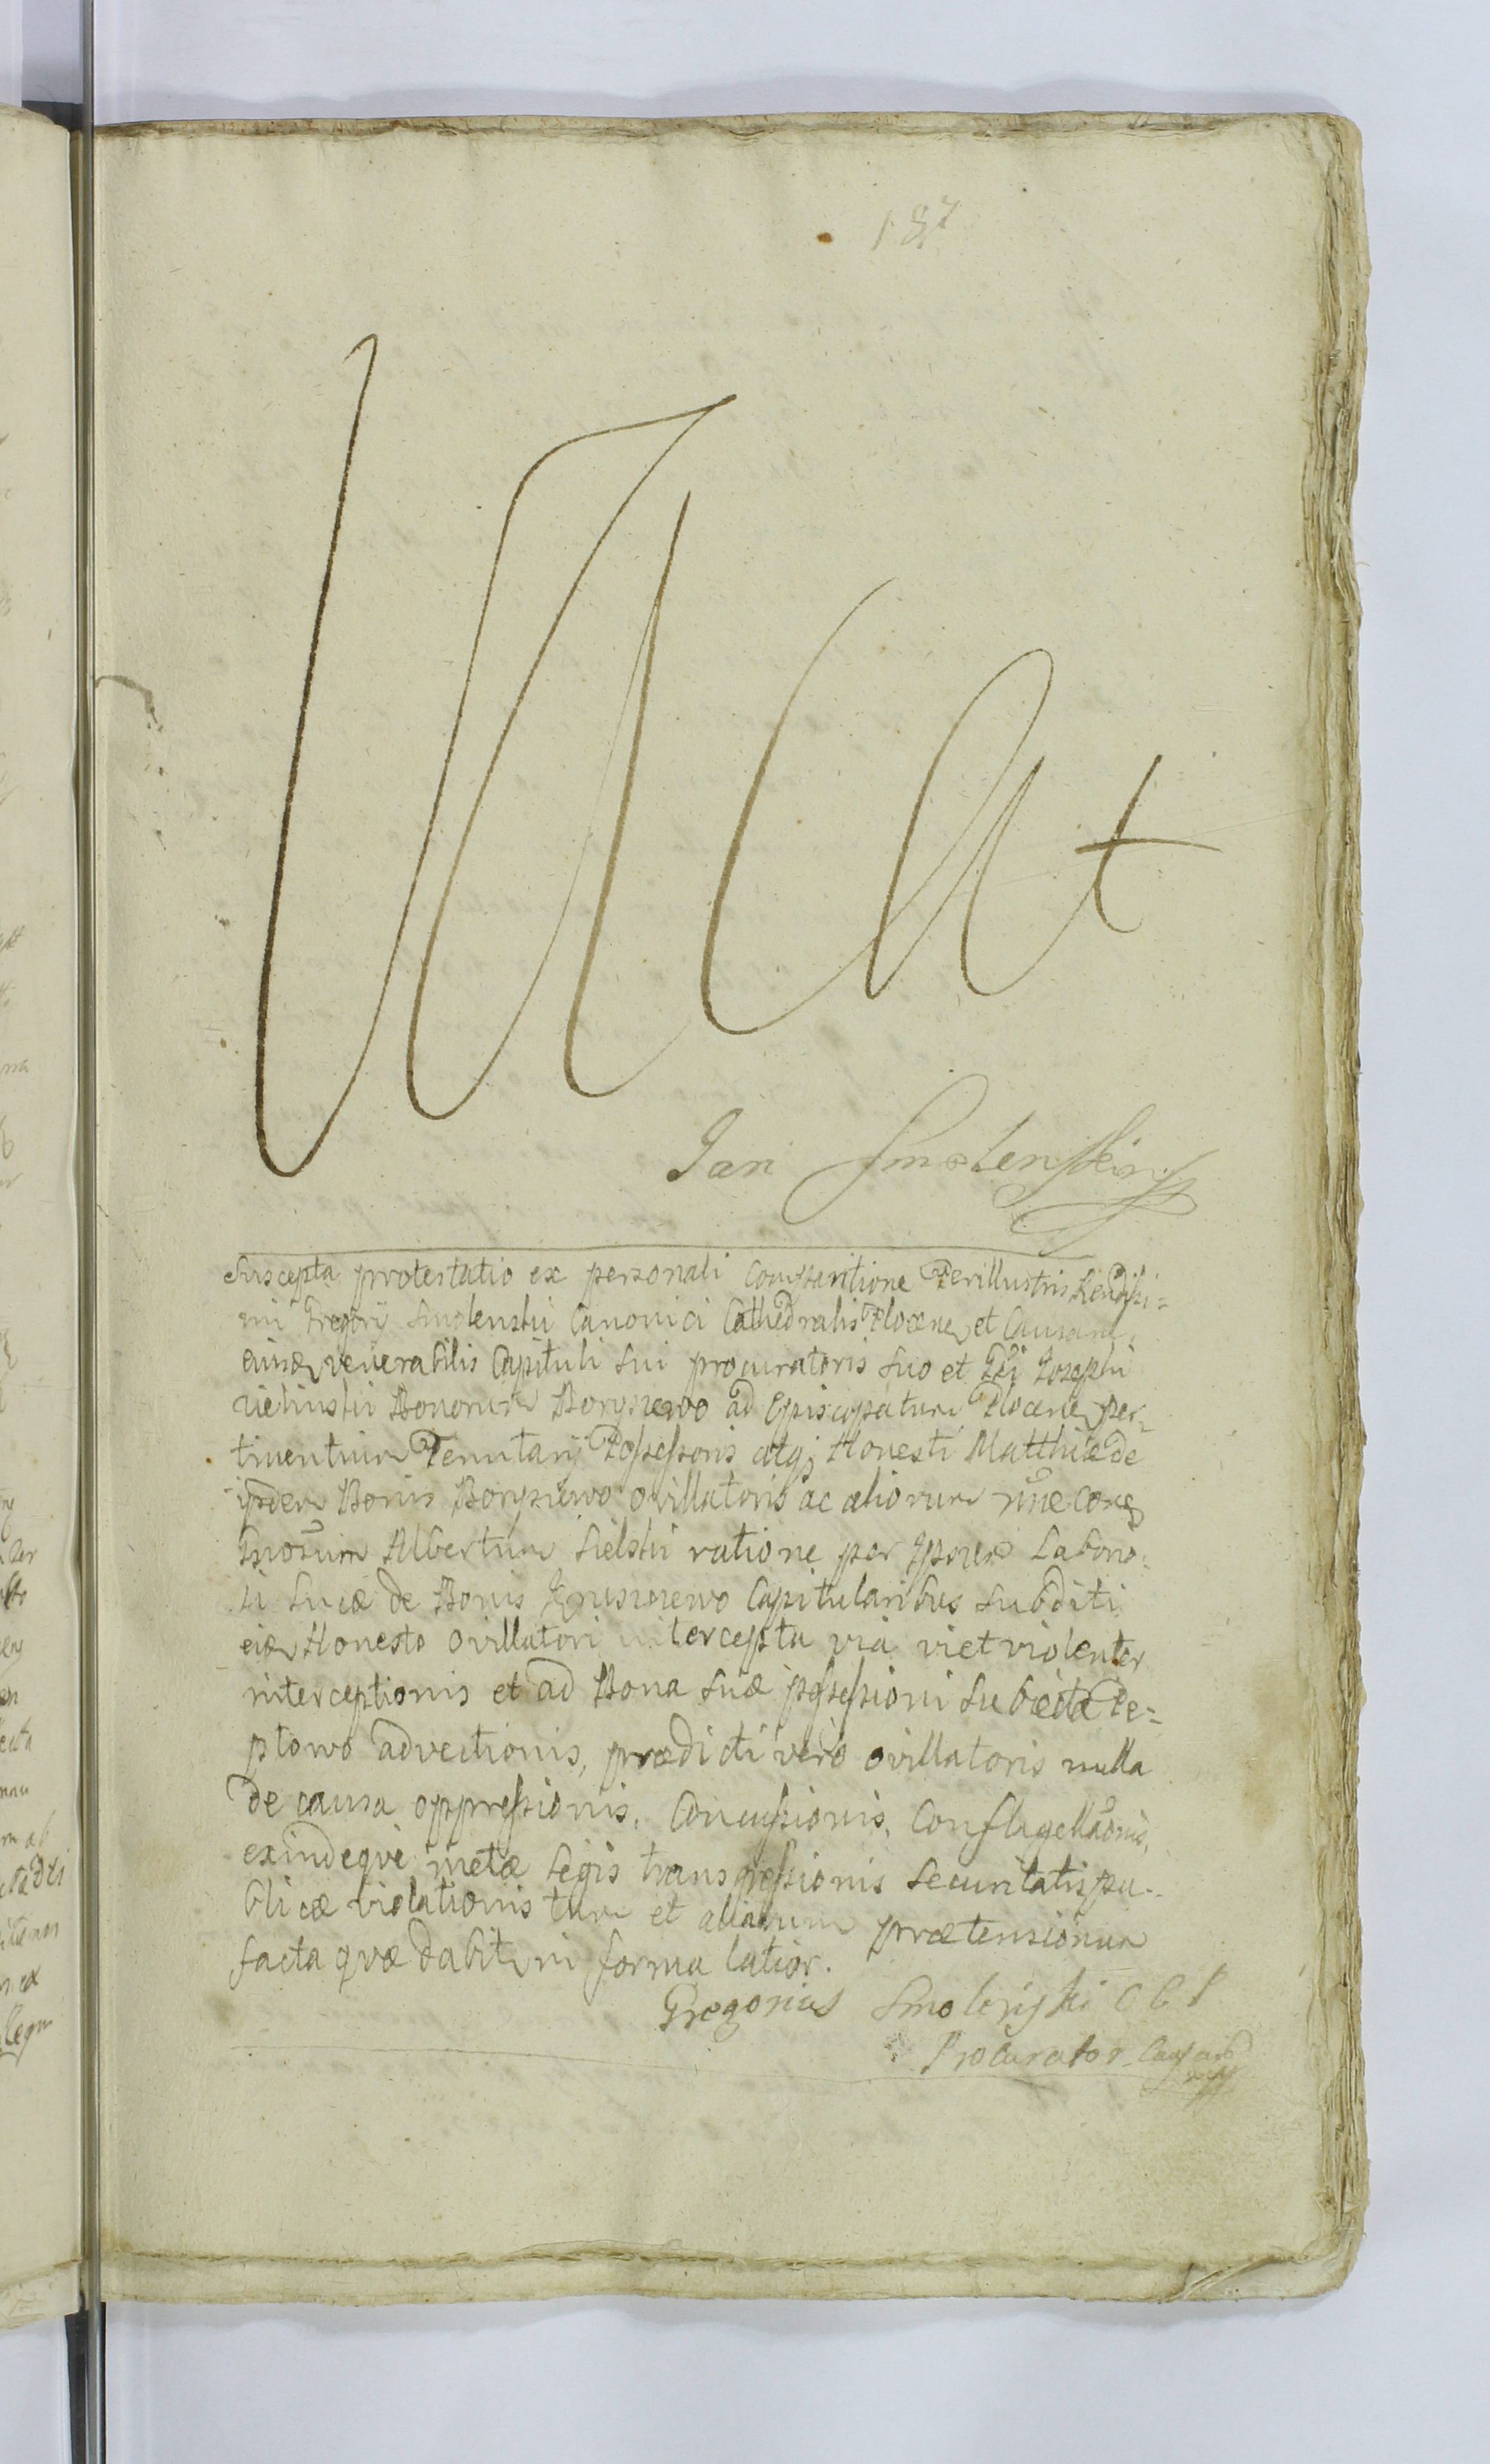 187
Vacat
Jan Smolenski
Suscepta protestatio ex personali comparitione Perillustris Rendissi=
mi Gregorij Smolenski Canonici Cathedralis Plocen et Causarum
ejusq venerabilis Capituli sui procuratoris suo et Gsi Josephi
Bonorum Boryszewo ad Episcopatum Plocen per=
tinentium Tenutarij Possessoris atq; Honesti Matthiæ de
ijsdem Bonis Boryszewo ovillatoris ac aliorum nne cone
Gnosum Albertum Sielski ratione per Ipsum Laborio=
si Lucæ de Bonis Capitularibus subditi
eiq Honesto ovillatori intercepta via vi et violenter
interceptionis et ad Bona suæ possessioni subjecta
advectionis, prædicti vero ovillatoris nulla
de causa oppressionis, Concussionis, Conflagellaonis,
exindeqve metæ Legis transgressionis securitatis pu=
blicæ violationis tum et aliarum prætensionum
facta qvæ dabitur in forma latior.
Gregorius Smolenski C C P
Procurator